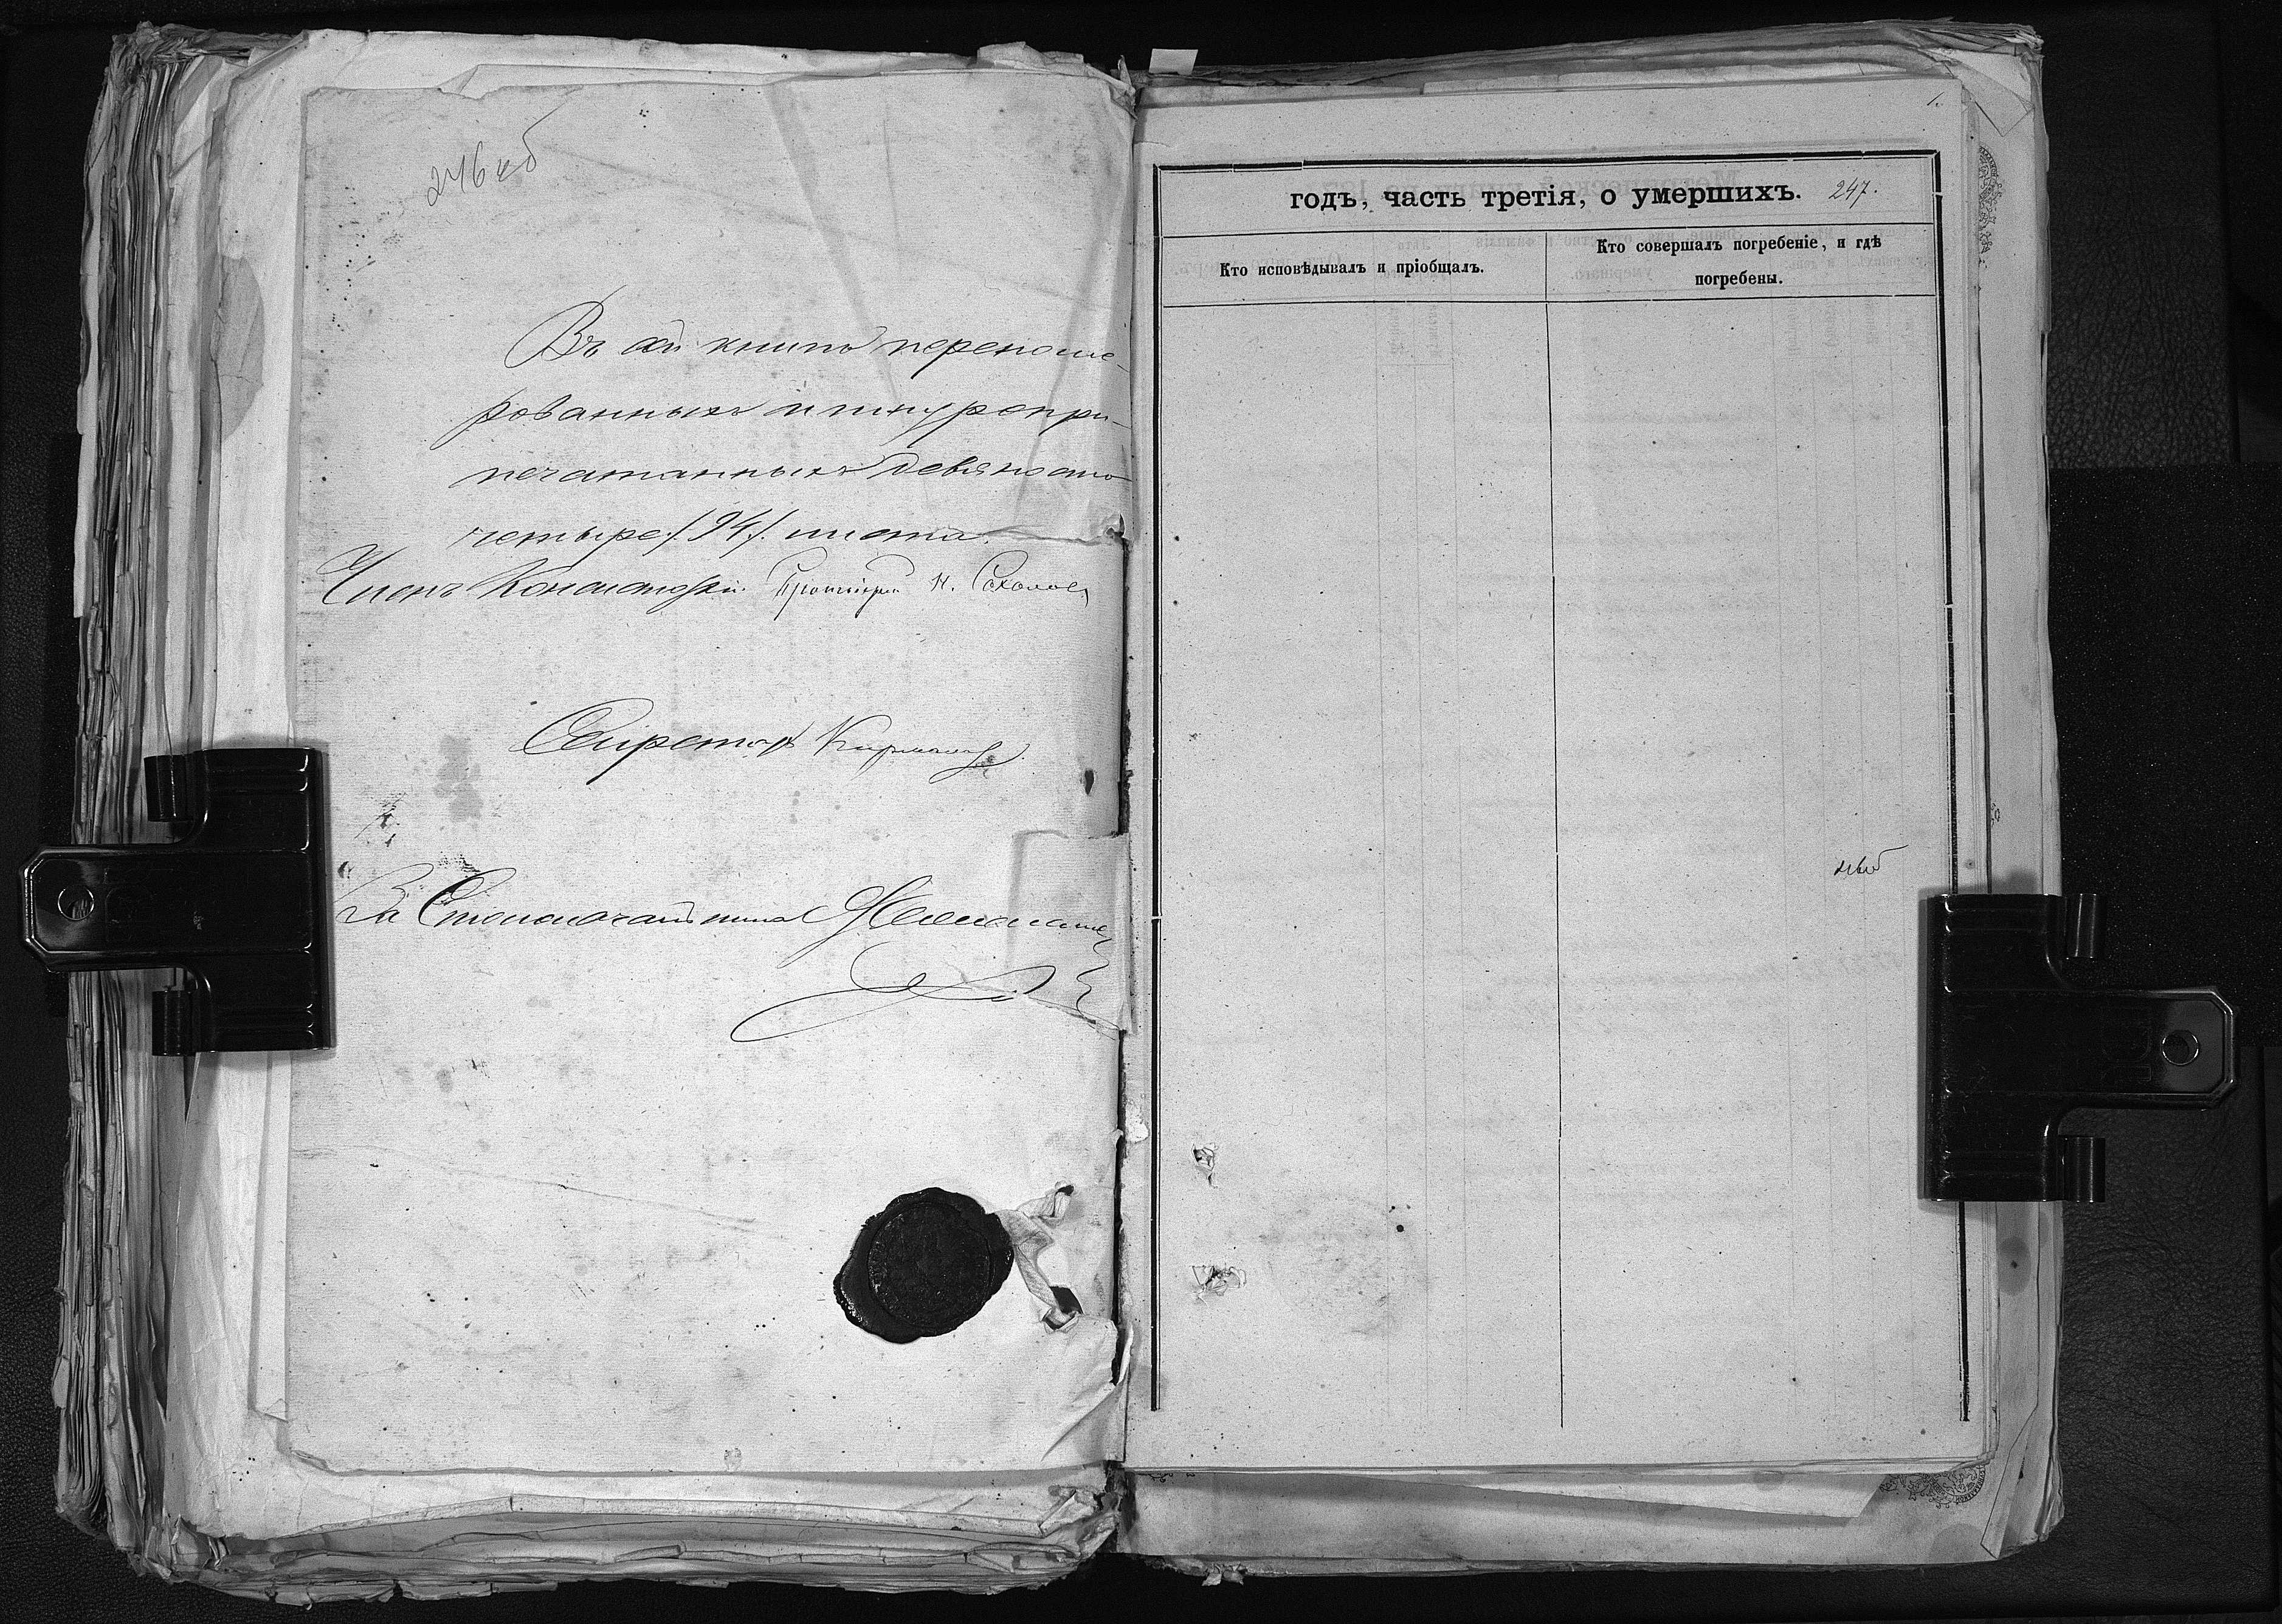 246 об
Въ сей книгѣ перенуме-
рованныхъ и шнуропри-
печатанныхъ девяносто
четыре /94/. листа.
Членъ Консисторіи Протоіерей Н. Соколовъ
Секретарь
За Столоначальника
1.
годъ, часть третія, о умершихъ. 247.
Кто исповѣдывалъ и пріобщалъ.
Кто совершалъ погребеніе, и гдѣ
погребены.